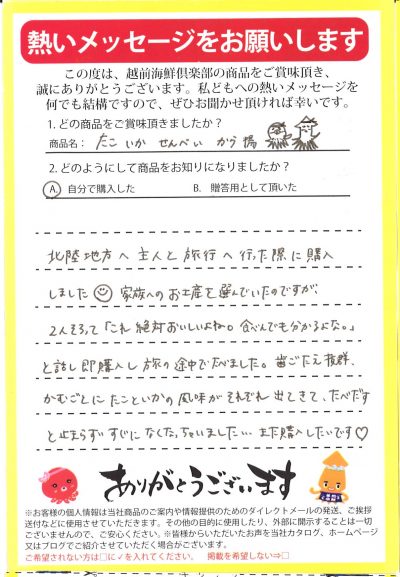 熱いメッセージをお願いします
この度は、越前海鮮倶楽部の商品をご賞味頂き、
誠にありがとうございます。私どもへの熱いメッセージを
何でも結構ですので、ぜひお聞かせ頂ければ幸いです。
1. どの商品をご賞味頂きましたか？
商品名： たこ いか せんべい かっ揚
2. どのようにして商品をお知りになりましたか？
A. 自分で購入した B. 贈答用として頂いた
北陸地方へ主人と旅行へ行った際に購入
しました 家族へのお土産を選んでいたのですが、
2人そろって「これ絶対おいしいよね。食べんでも分かるよな。」
と話し即購入し旅の途中でたべました。歯ごたえ抜群、
かむごとにたこといかの風味がそれぞれ出てきて、たべだす
と止まらずすぐになくなっちゃいました… また購入したいです♡
ありがとうございます
※お客様の個人情報は当社商品のご案内や情報提供のためのダイレクトメールの発送、ご挨拶
送付などに使用させていただきます。その他の目的に使用したり、外部に開示することは一切
ございませんので、ご安心ください。※皆様からいただいたお声を当社カタログ、ホームページ
又はブログでご紹介させていただく場合がございます。
ご希望されない方は□に✓を入れてください。 掲載を希望しない⇒□